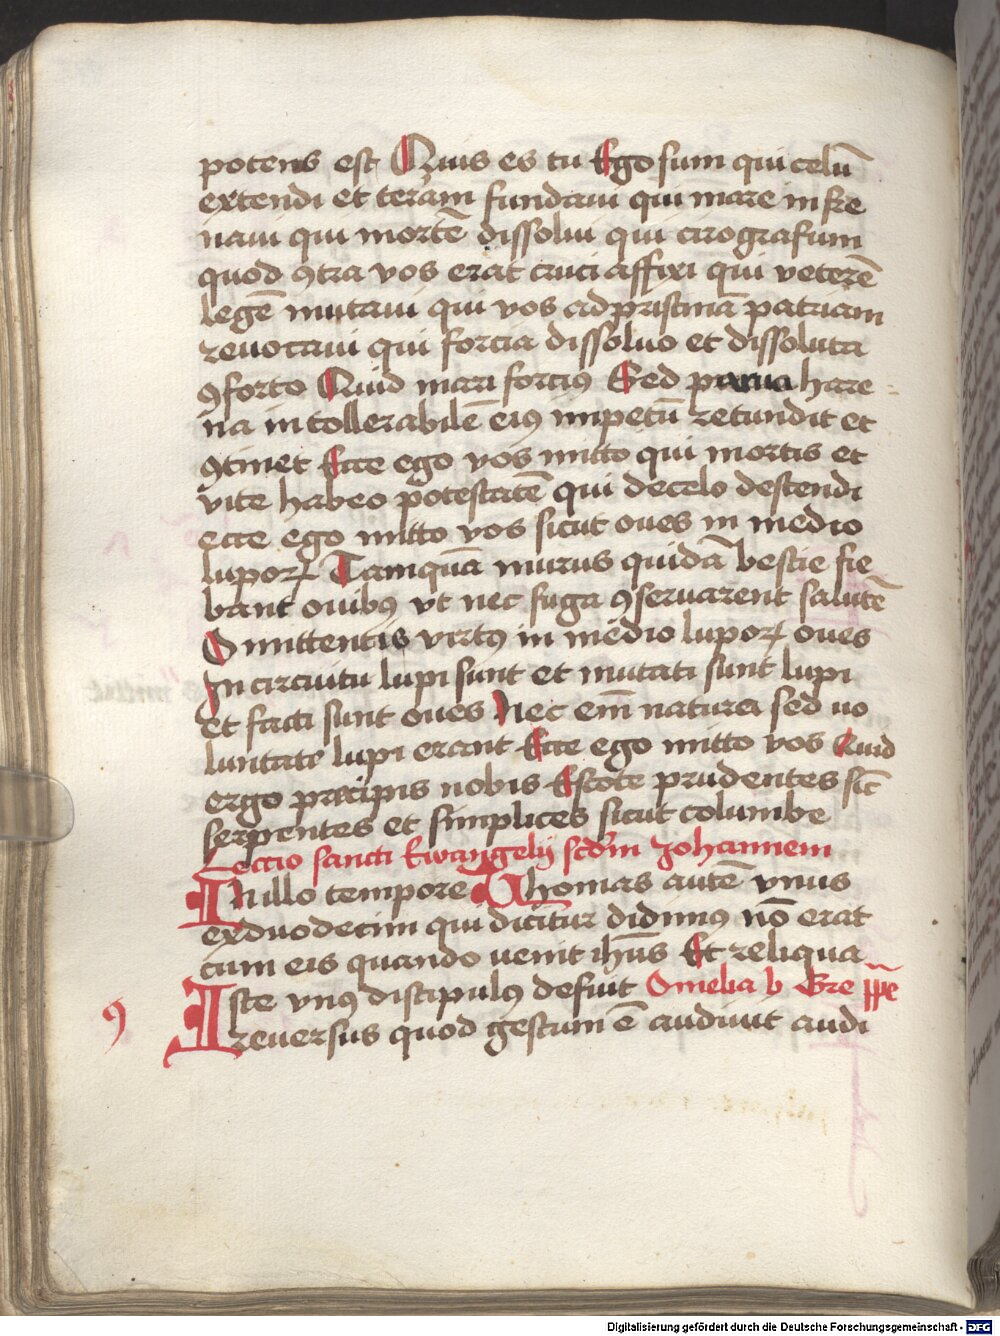 potens est Quis es tu Ego sum qui celū
extendi et terram fundaui qui mare infre
naui qui mortē dissolui qui cirografum
quod ꝯtra vos erat cruci affixi qui veterē
legē mutaui qui vos ad pristinā patriam
reuocaui qui forcia dissoluo et dissoluta
ꝯforto Quid mari forciꝰ Sed parua hare
na intollerabilē eiꝰ impetū retundit et
ꝯtinet Ecce ego vos mitto qui mortis et
vite habeo potestatē qui de celo descendi
ecce ego mitto vos sicut oues in medio
lupoꝝ Tamquā murus quidā bestie fie
bant ouibꝰ vt nec fuga ꝯseruarent salutē
O mittentis virtꝰ in medio lupoꝝ oues
In circuitu lupi sunt et mutati sunt lupi
et facti sunt oues Nec em̄ natura sed uo
luntate lupi erant Ecce ego mitto vos Quid
ergo precipis nobis Estote prudentes sic̄
serpentes et simplices sicut columbe
Leccio sancti Ewangelij scdm̄ Johannem
In illo tempore Thomas autē vnus
ex duodecim qui dicitur didimꝰ nō erat
cum eis quando uenit ihūs Et reliqua
Iste vnꝰ discipulꝰ defuit Omelia b Gre ppe
reuersus quod gestum ē audiuit audi
9
Digitalisierung gefördert durch die Deutsche Forschungsgemeinschaft - DFG